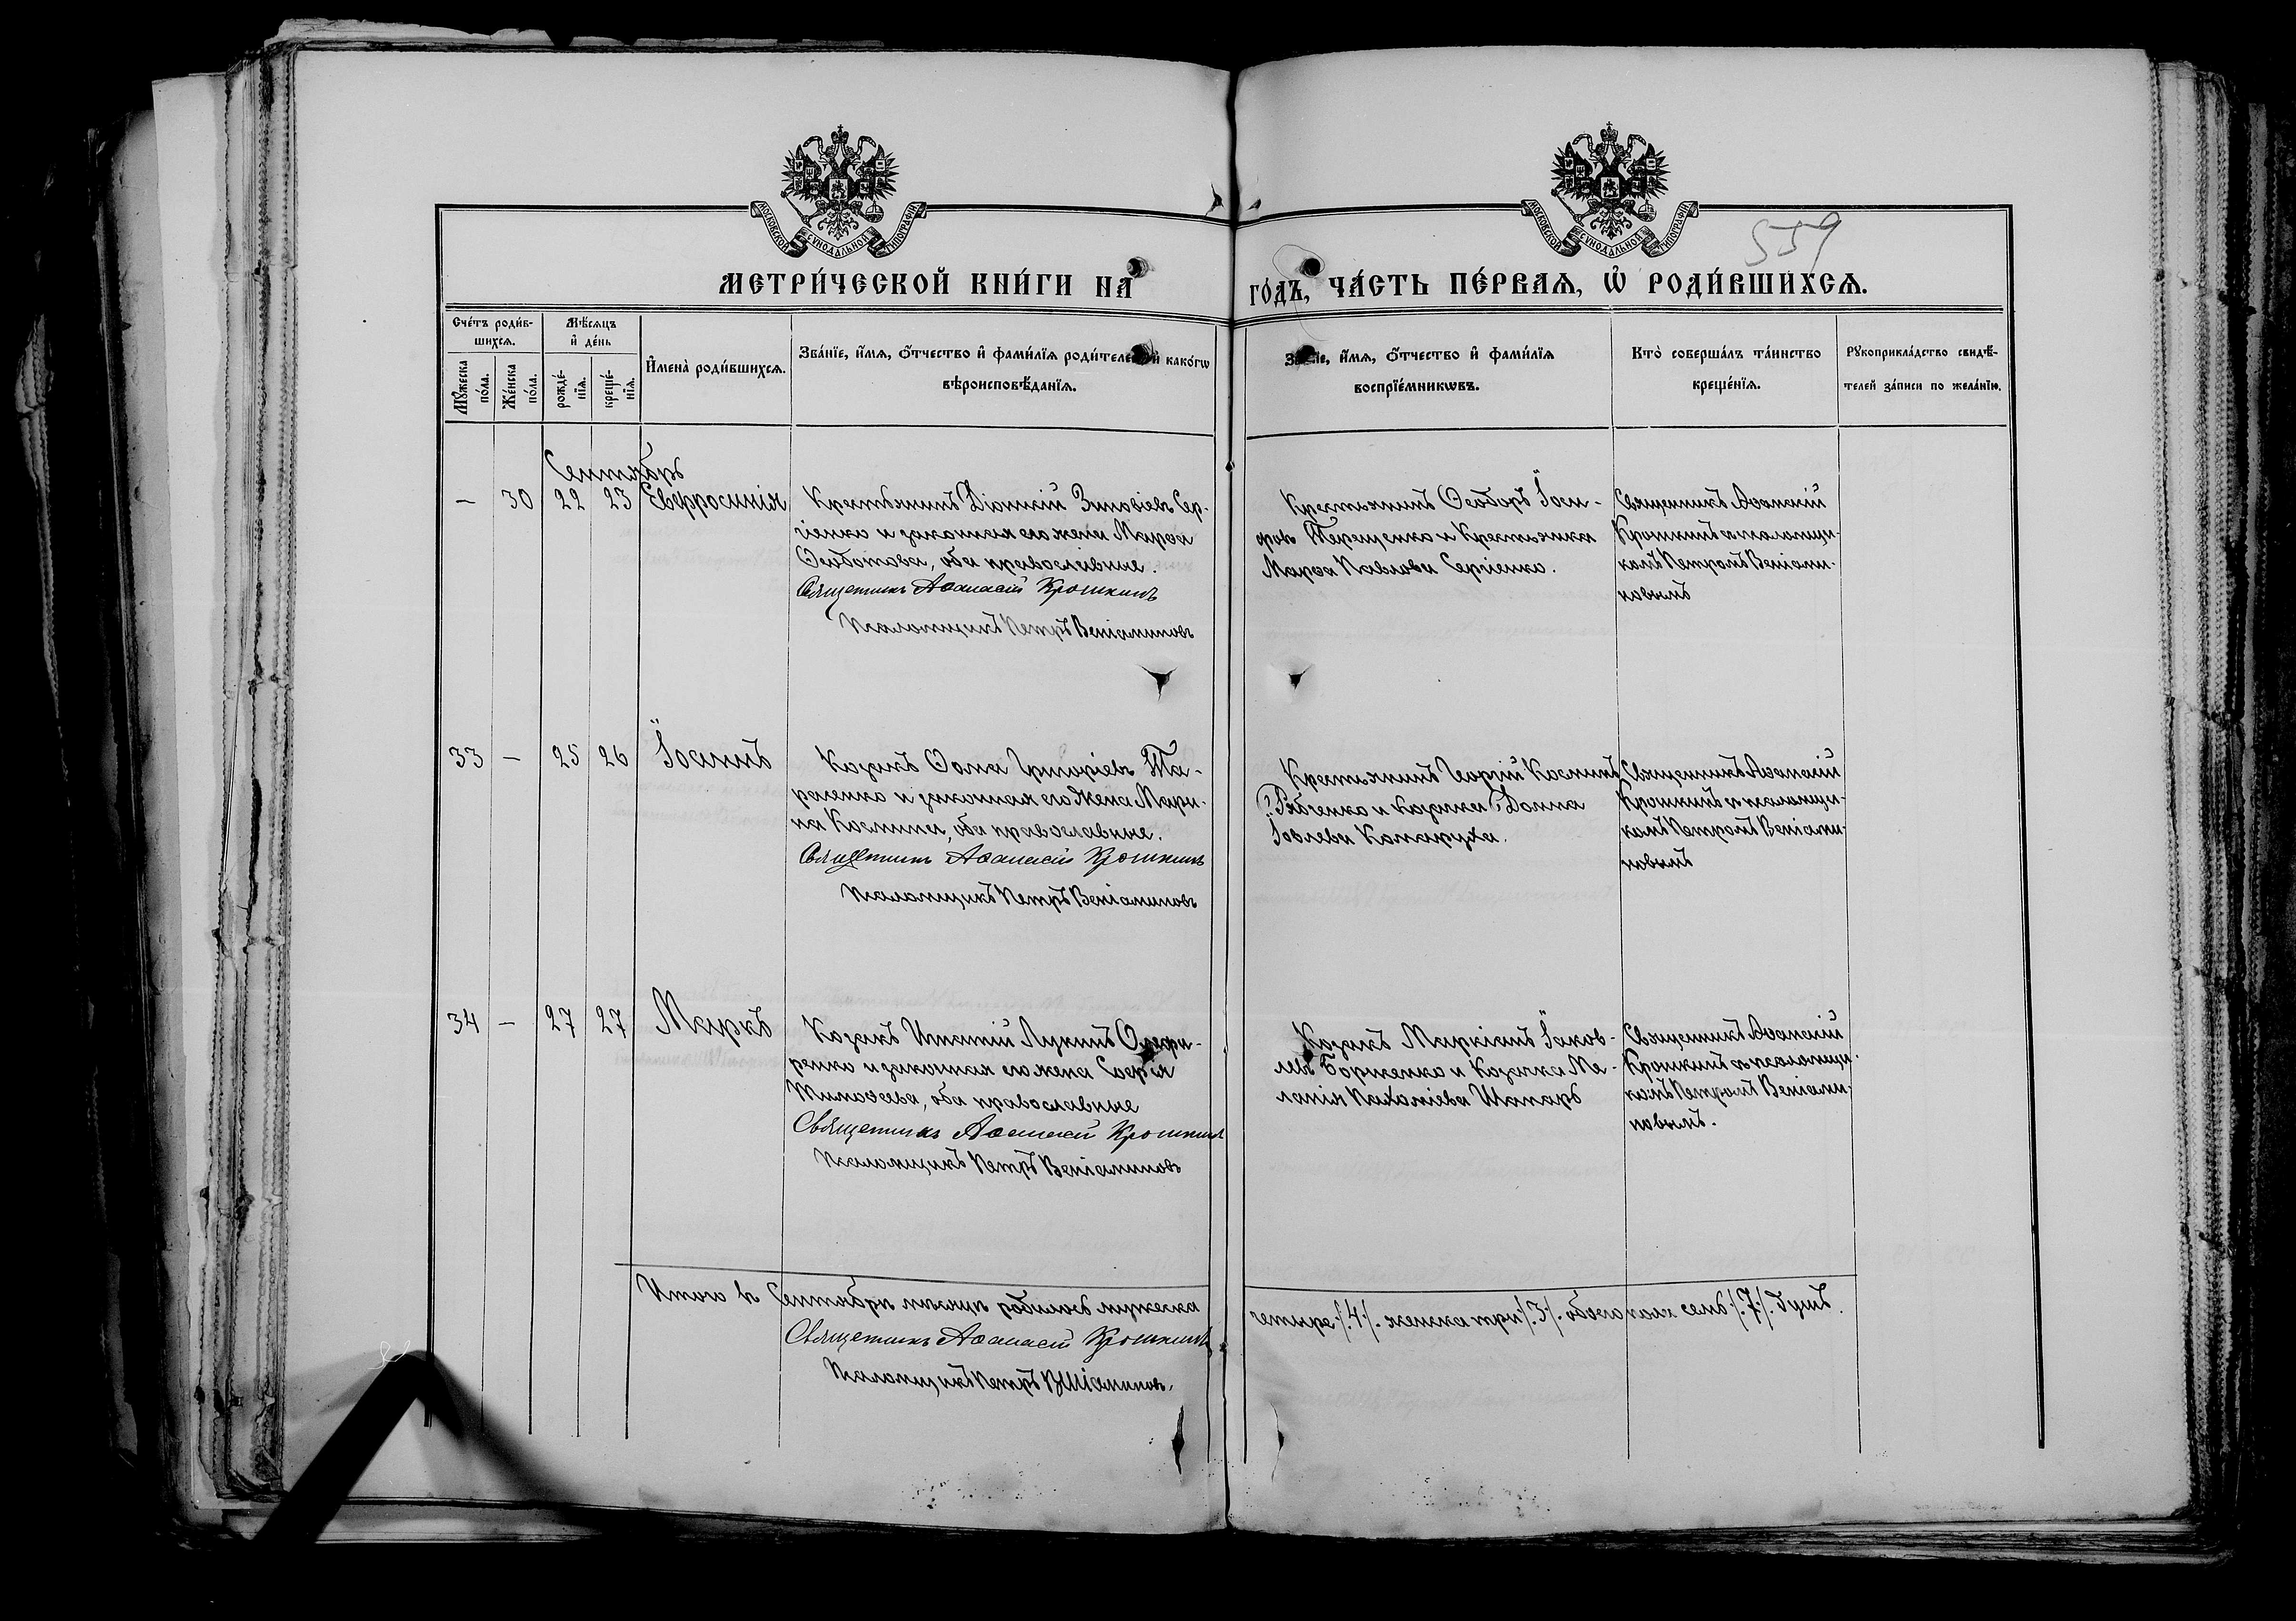 МОСКОВСКОЙ СѴНОДАЛЬНОЙ ТИПОГРАФІИ
МОСКОВСКОЙ СѴНОДАЛЬНОЙ ТИПОГРАФІИ
559
МЕТРИ́ЧЕСКОЙ КНИ́ГИ НА ГО́ДЪ, ЧА́СТЬ ПЕ́РВАЯ, Ѽ РОДИ́ВШИХСЯ.
Сче́тъ роди́в-
шихся.
Мѣ́сяцъ
и҆ де́нь
Мꙋ́жеска
по́ла.
Же́нска
по́ла.
рожде́-
нїя.
креще́-
нїя.
И҆мена̀ роди́вшихся.
Зва́нїе, и҆́мя, о҆́тчество и҆ фами́лїя роди́телей и како́гѡ
вѣроисповѣ́данїя.
и҆́мя, о҆́тчество и҆ фами́лїя
воспрїе́мникѡвъ.
Кто̀ соверша́лъ та́инство
креще́нїя.
Рꙋкоприкла́дство свидѣ́-
телей за́писи по жела́нїю.
Сентябрь
— 30 22 23 Евфросинія
Крестьянинъ Діонисій Зиновіевъ Сер-
гіенко и законная его жена Марѳа
Ѳедотова, оба православные.
Священникъ Аѳанасій Крошкинъ
Псаломщикъ Петръ Веніаминовъ
Крестьянинъ Ѳеодоръ Іоси-
фовъ Терещенко и Крестьянка
Марѳа Павлова Сергіенко.
Священникъ Аѳанасій
Крошкинъ съ псаломщи-
комъ Петромъ Веніами-
новымъ
33 — 25 26 Іоаннъ
Козакъ Ѳома Григоріевъ Та-
расенко и законная его жена Мари-
на Космина, оба православные.
Священникъ Аѳанасій Крошкинъ
Псаломщикъ Петръ Веніаминовъ
Крестьянинъ Георгій Косминъ
Рябченко и Козачка Домна
Іовлева
Священникъ Аѳанасій
Крошкинъ съ псаломщи-
комъ Петромъ Веніами-
новымъ
34 — 27 27 Маркъ
Козакъ Игнатій Лукинъ Олефи-
ренко и законная его жена Софія
Тимоѳеева, оба православные
Священникъ Аѳанасій Крошкинъ
Псаломщикъ Петръ Веніаминовъ
Козакъ Маркіанъ Іаков-
левъ Борженко и Козачка Ме-
ланія Пахоміева
Священникъ Аѳанасій
Крошкинъ съ псаломщи-
комъ Петромъ Веніами-
новымъ.
Итого въ Сентябрѣ мѣсяцѣ родилось мужеска
четыре /.4./. женска три /.3/. обоего пола семь /.7./. душъ.
Священникъ Аѳанасій Крошкинъ
Псаломщикъ Петръ Веніаминовъ.